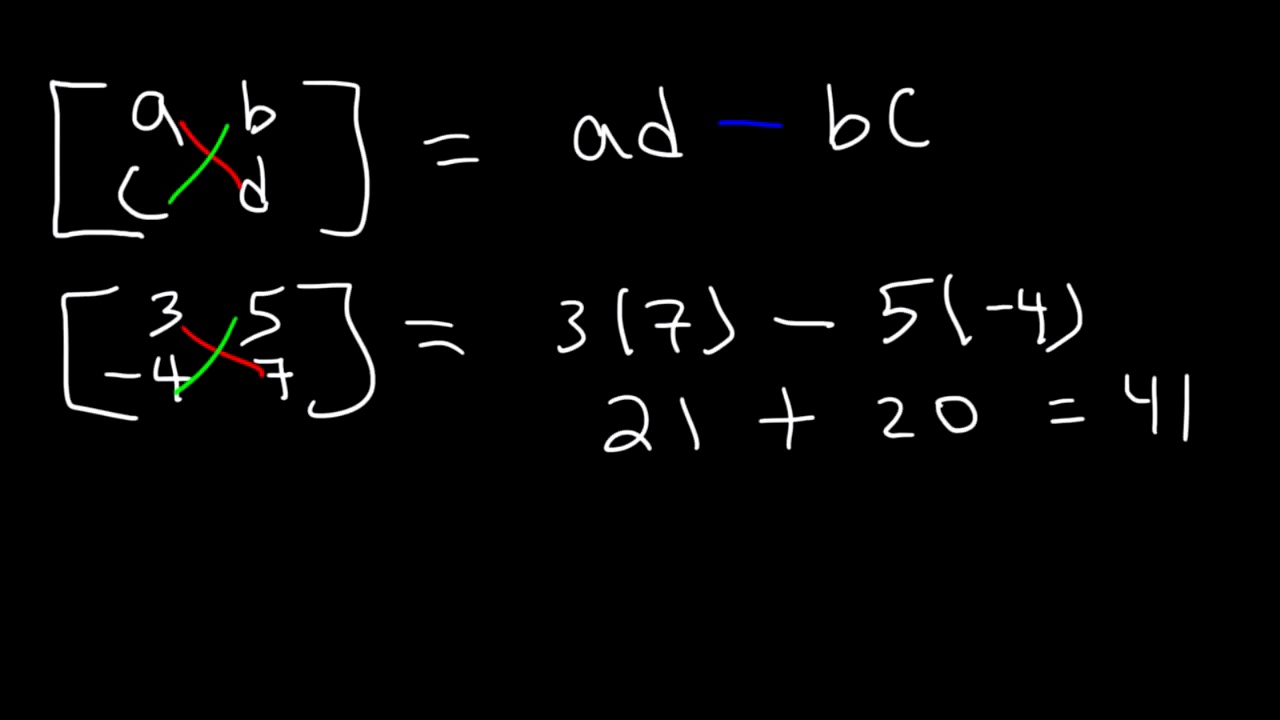 [a b
c d] = ad - bc
[3 5
-4 7] = 3(7) - 5(-4)
21 + 20 = 41